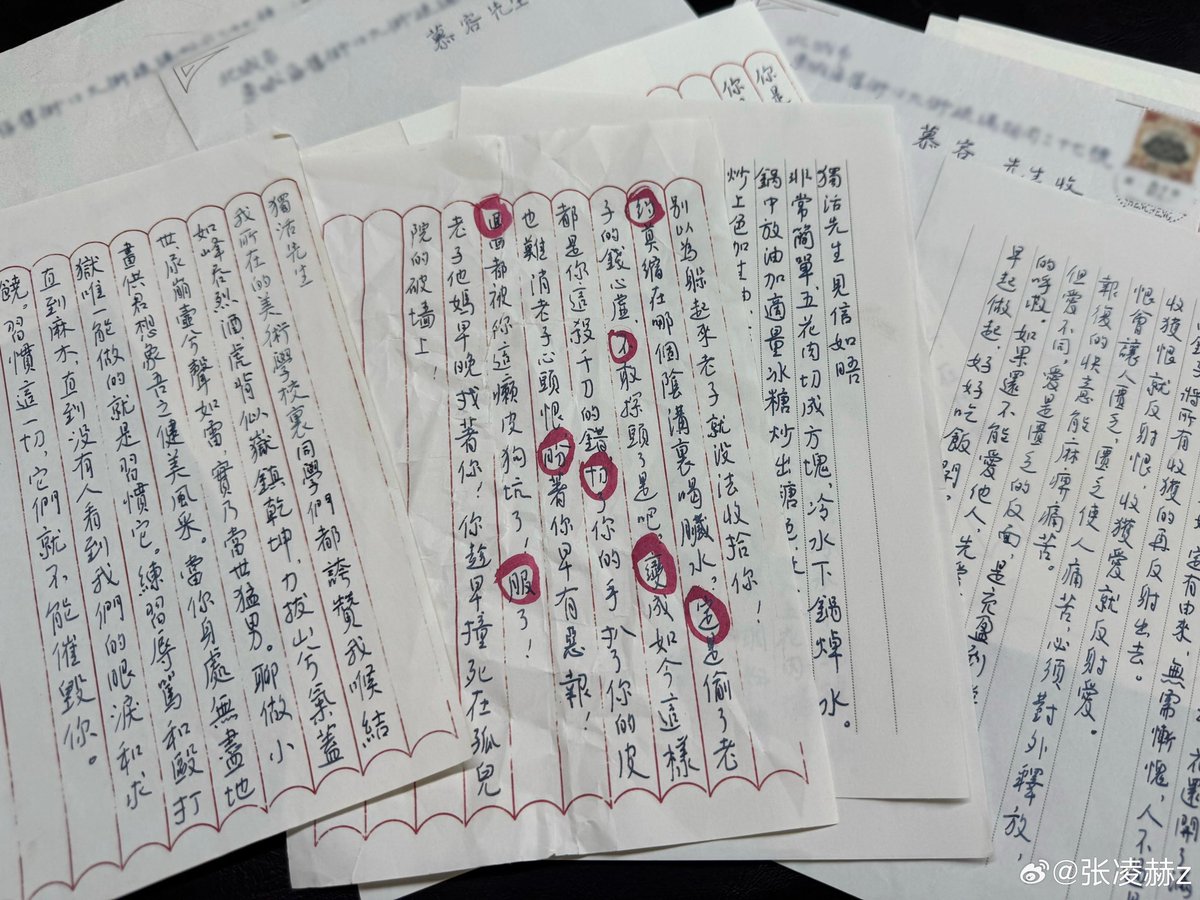 慕容先生
慕容 先生收
收獲恨就反射恨,收獲愛就反射愛
恨會讓人匱乏,匱乏使人痛苦,必須對外釋放,
報復的快意能麻痺痛苦。
但愛不同,愛是匱乏的反面,是充盈到
的呼吸。如果還不能愛他人,先
早起做起,好好吃飯開。
你是
你
獨活先生見信如晤
非常簡單,五花肉切成方塊,冷水下鍋焯水。
鍋中放油加適量冰糖炒出糖色,
炒上色加生
别以為躲起來老子就没法收拾你!
約莫縮在哪個陰溝裏喝臟水,定是偷了老
子的錢心虚,不敢探頭了是吧。變成如今這樣
都是你這殺千刀的錯,切了你的手扒了你的皮
也難消老子心頭恨,盼著你早有惡報!
回回都被你這癩皮狗坑了!服了!
老子他媽早晚找著你!你趁早撞死在孤兒
院的破墙上!
獨活先生
我所在的美術學校裏同學們都誇贊我喉結
如峰吞烈酒,虎背似嶽鎮乾坤,力拔山兮氣蓋
世,尿崩壺兮聲如雷,實乃當世猛男。聊做小
畫供君想象吾之健美風采。當你身處無盡地
獄唯一能做的就是習慣它。練習辱駡和毆打
直到麻木、直到没有人看到我們的眼淚和求
饒。習慣這一切,它們就不能催毀你。
@张凌赫z